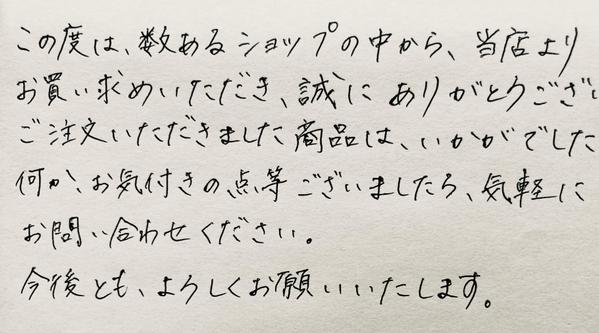 この度は、数あるショップの中から、当店より
お買い求めいただき、誠にありがとうござい
ご注文いただきました商品は、いかがでした
何か、お気付きの点等ございましたら、気軽に
お問い合わせください。
今後とも、よろしくお願いいたします。